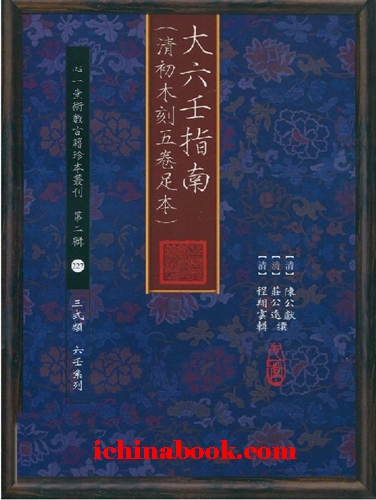 大六壬指南
(清初木刻五卷足本)
心一堂術數古籍珍本叢刊 第二輯 227
三式類 六壬系列
【清】陳公獻撰
【清】莊公遠
【清】程翔雲輯
ichinabook.com